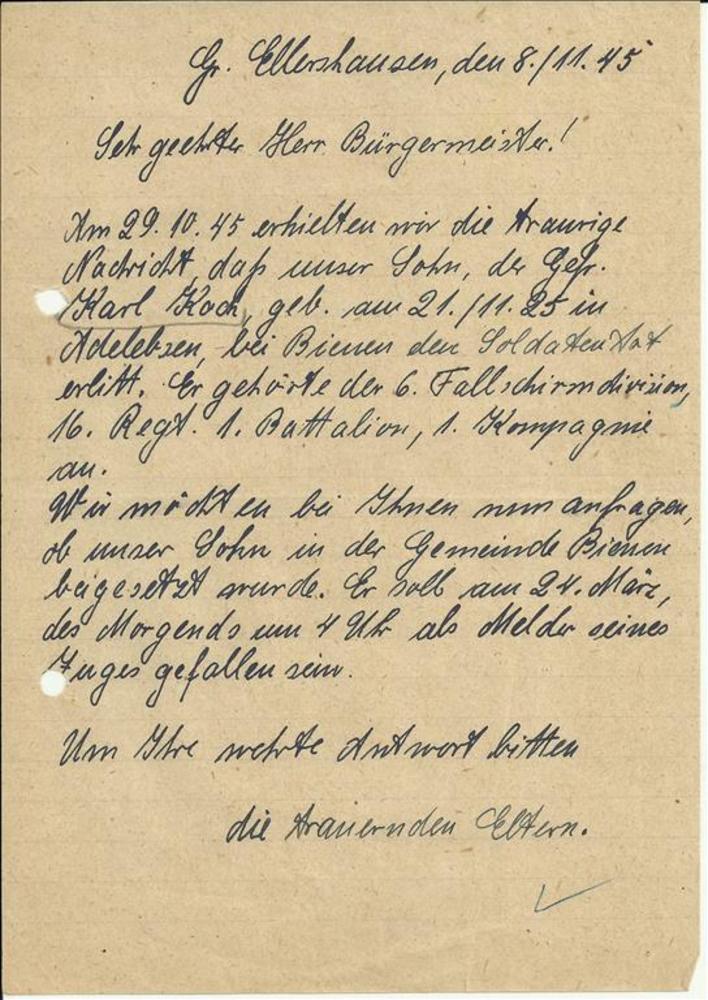 Gr. Ellershausen, den 8./11. 45
Sehr geehrter Herr Bürgermeister!
Am 29. 10. 45 erhielten wir die traurige
Nachricht, daß unser Sohn, der Gefr.
Karl Koch, geb. am 21./11. 25 in
Adelebsen, bei Bienen den Soldatentot
erlitt. Er gehörte der 6. Fallschirmdivision,
16. Regt. 1. Battalion, 1. Kompagnie
an.
Wir möchten bei Ihnen nun anfragen,
ob unser Sohn in der Gemeinde Bienen
beigesetzt wurde. Er soll am 24. März,
des Morgends um 4 Uhr als Melder seines
Zuges gefallen sein.
Um Ihre wehrte Antwort bitten
die trauernden Eltern.